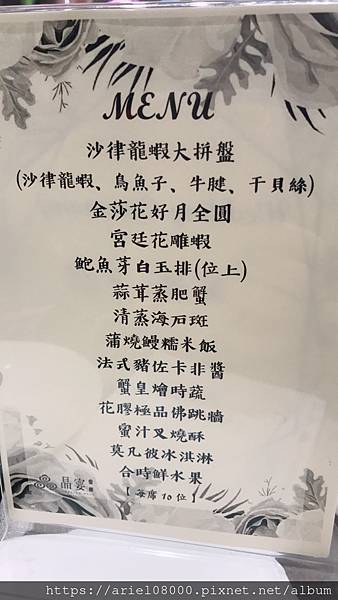 MENU
沙律龍蝦大拼盤
(沙律龍蝦、烏魚子、牛腱、干貝絲)
金莎花好月全圓
宮廷花雕蝦
鮑魚芽白玉排(位上)
蒜茸蒸肥蟹
清蒸海石斑
蒲燒鰻糯米飯
法式豬佐卡非醬
蟹皇燴時蔬
花膠極品佛跳牆
蜜汁叉燒酥
莫凡彼冰淇淋
合時鮮水果
晶宴會館
【每席10位】
https://ariel08000.pixnet.net/album